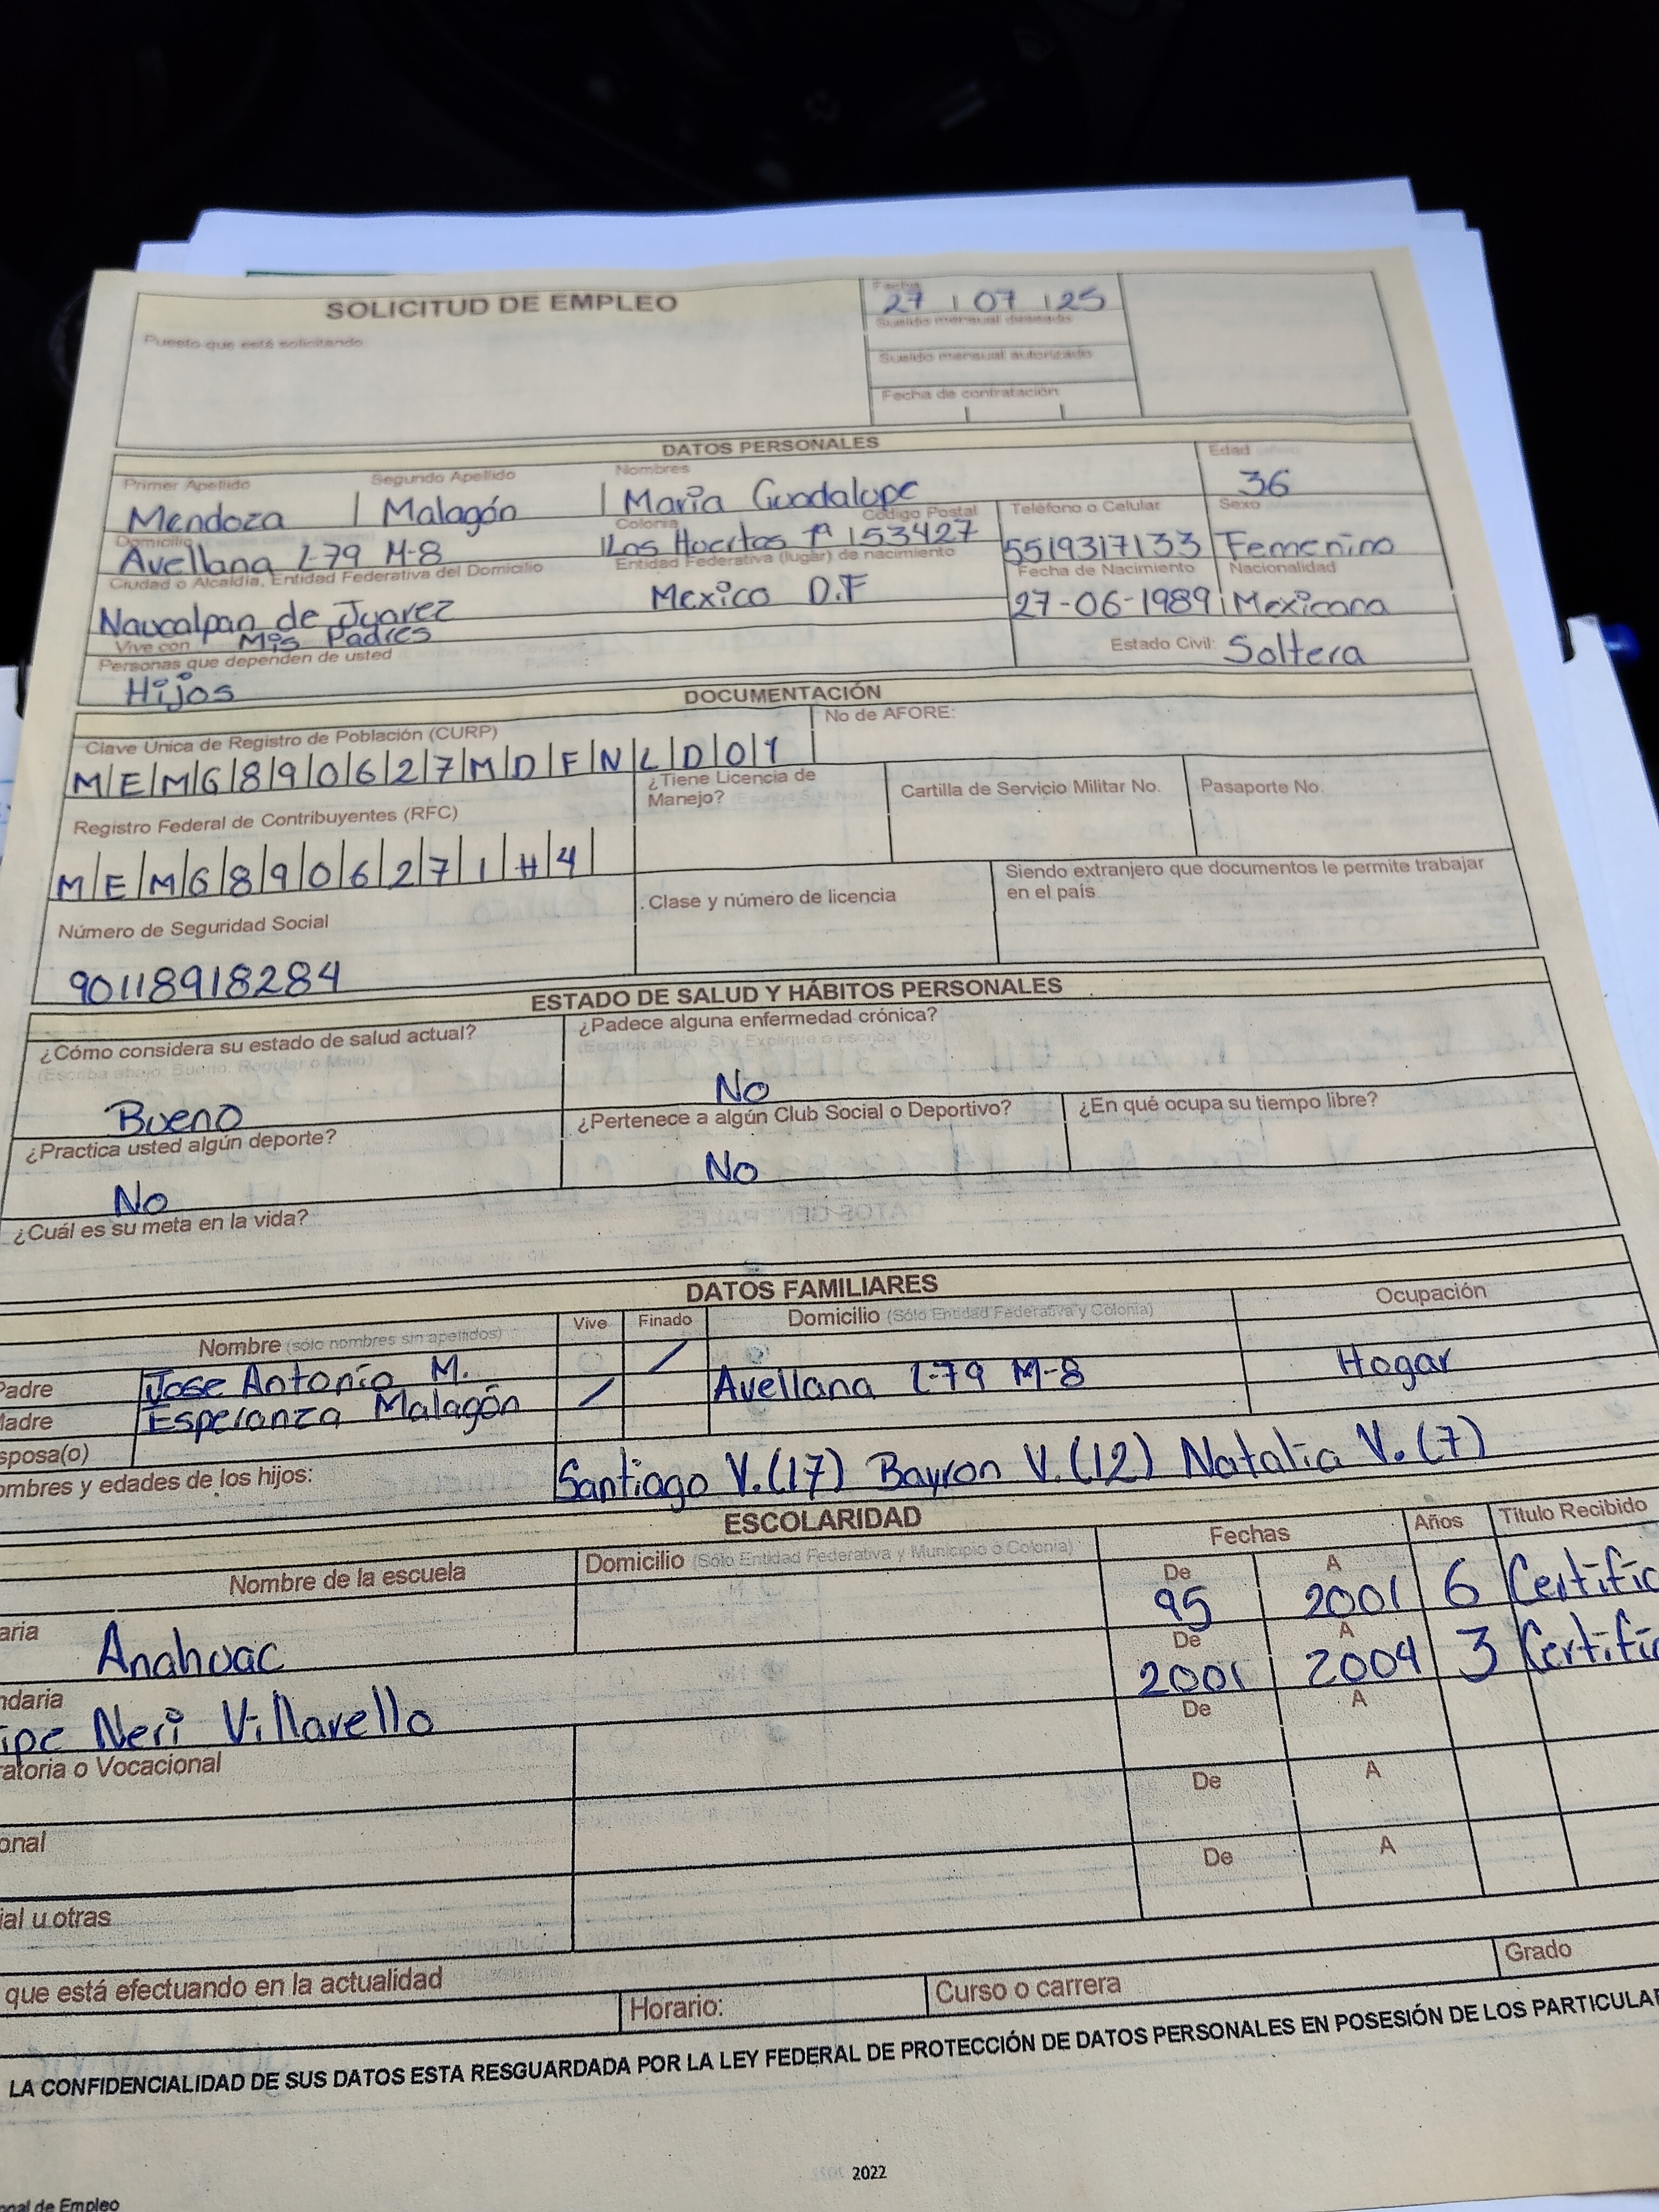 SOLICITUD DE EMPLEO
Fecha
27 | 07 | 25
Puesto que está solicitando
Sueldo mensual deseado
Sueldo mensual autorizado
Fecha de contratación
DATOS PERSONALES
Primer Apellido Segundo Apellido Nombres Edad
Mendoza | Malagón | Maria Guadalupe 36
Domicilio Colonia Código Postal Teléfono o Celular Sexo
Avellana L-79 M-8 Los Huertas 1ª 53427 5519317133 Femenino
Ciudad o Alcaldía, Entidad Federativa del Domicilio Entidad Federativa (lugar) de nacimiento Fecha de Nacimiento Nacionalidad
Naucalpan de Juarez Mexico D.F 27-06-1989 Mexicana
Vive con Mis Padres
Estado Civil: Soltera
Personas que dependen de usted
Hijos
DOCUMENTACIÓN
Clave Única de Registro de Población (CURP) No de AFORE:
M|E|M|G|8|9|0|6|2|7|M|D|F|N|L|D|0|1
¿Tiene Licencia de Manejo? Cartilla de Servicio Militar No. Pasaporte No.
Registro Federal de Contribuyentes (RFC)
M|E|M|G|8|9|0|6|2|7|1|H|4
Clase y número de licencia
Siendo extranjero que documentos le permite trabajar
en el país
Número de Seguridad Social
90118918284
ESTADO DE SALUD Y HÁBITOS PERSONALES
¿Cómo considera su estado de salud actual? ¿Padece alguna enfermedad crónica?
(Escriba abajo: Bueno, Regular o Malo) (Escriba abajo: Si y Explique o escriba No)
Bueno No
¿Practica usted algún deporte? ¿Pertenece a algún Club Social o Deportivo? ¿En qué ocupa su tiempo libre?
No No
¿Cuál es su meta en la vida?
DATOS FAMILIARES
Nombre (sólo nombres sin apellidos) Vive Finado Domicilio (Sólo Entidad Federativa y Colonia) Ocupación
Padre Jose Antonio M. /
Madre Esperanza Malagón / Avellana L-79 M-8 Hogar
sposa(o)
ombres y edades de los hijos: Santiago V.(17) Bayron V.(12) Natalia V.(7)
ESCOLARIDAD
Nombre de la escuela Domicilio (Sólo Entidad Federativa y Municipio ó Colonia) Fechas Años Título Recibido
De A
aria Anahuac 95 2001 6 Certific
De A
ndaria ipe Neri Villarello 2001 2004 3 Certific
De A
ratoria o Vocacional
De A
onal
De A
ial u otras
que está efectuando en la actualidad
Horario: Curso o carrera Grado
LA CONFIDENCIALIDAD DE SUS DATOS ESTA RESGUARDADA POR LA LEY FEDERAL DE PROTECCIÓN DE DATOS PERSONALES EN POSESIÓN DE LOS PARTICULAR
2022
onal de Empleo